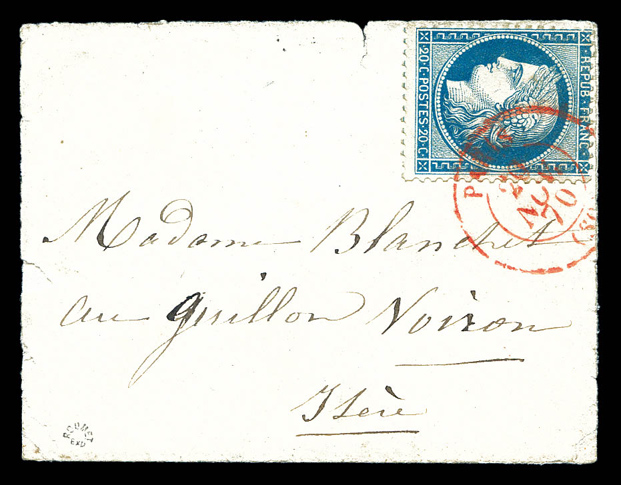 REPUB. FRANC.
20.C. POSTES.20.C
PARIS
NOV
70
Madame Blanchet
au Guillon Voiron
Isère